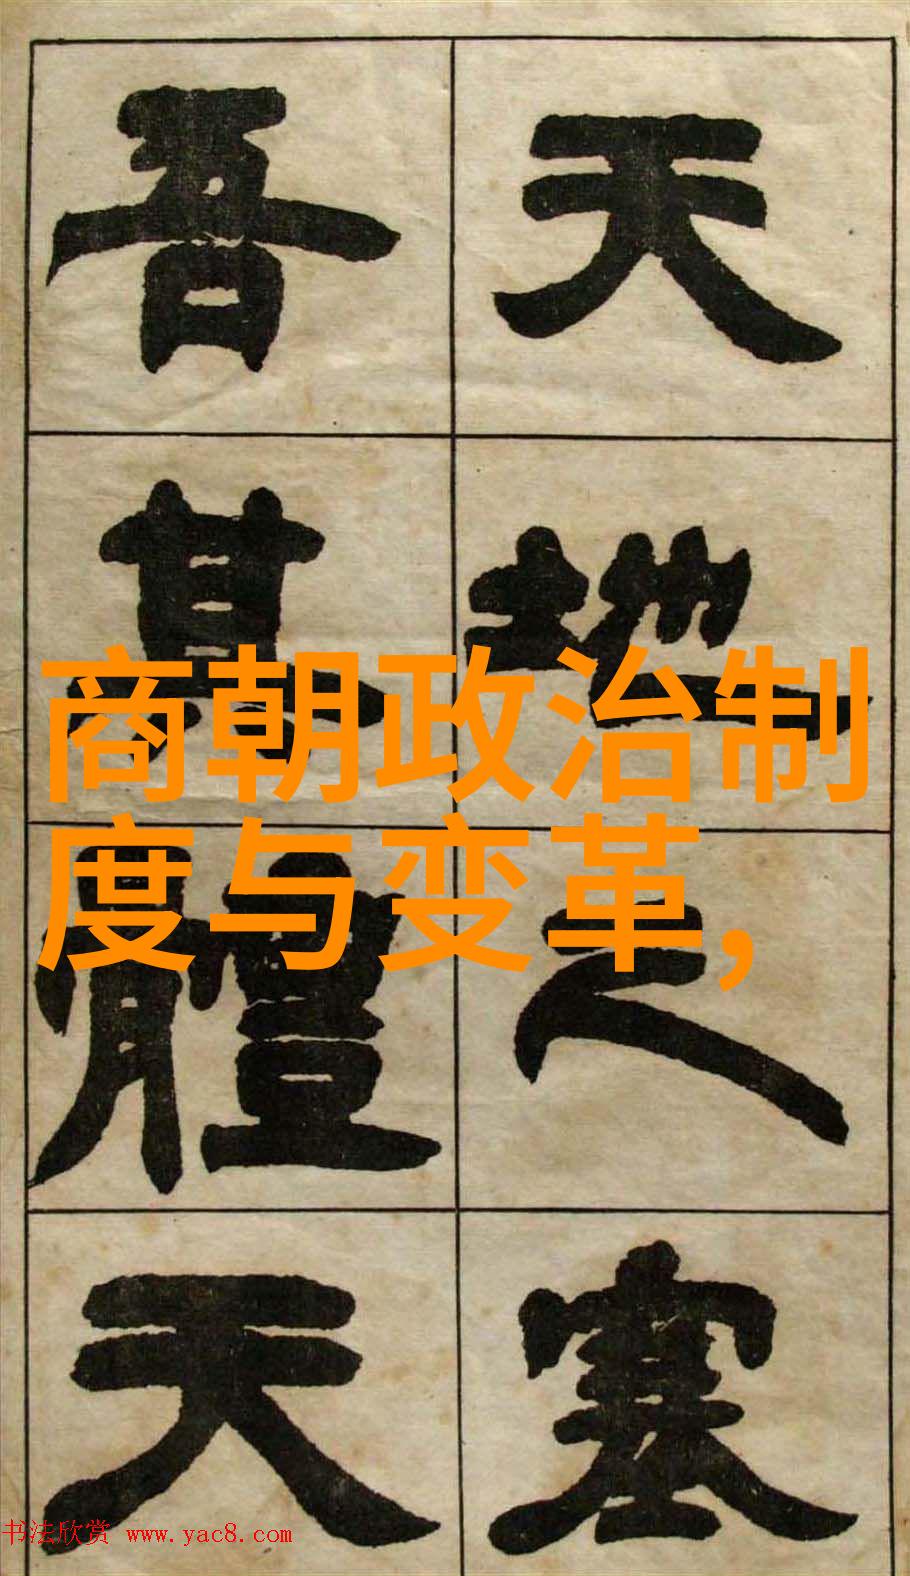 天地之塞
吾其體天
商朝政治制
度与变革,
书法欣赏 www.yac8.com